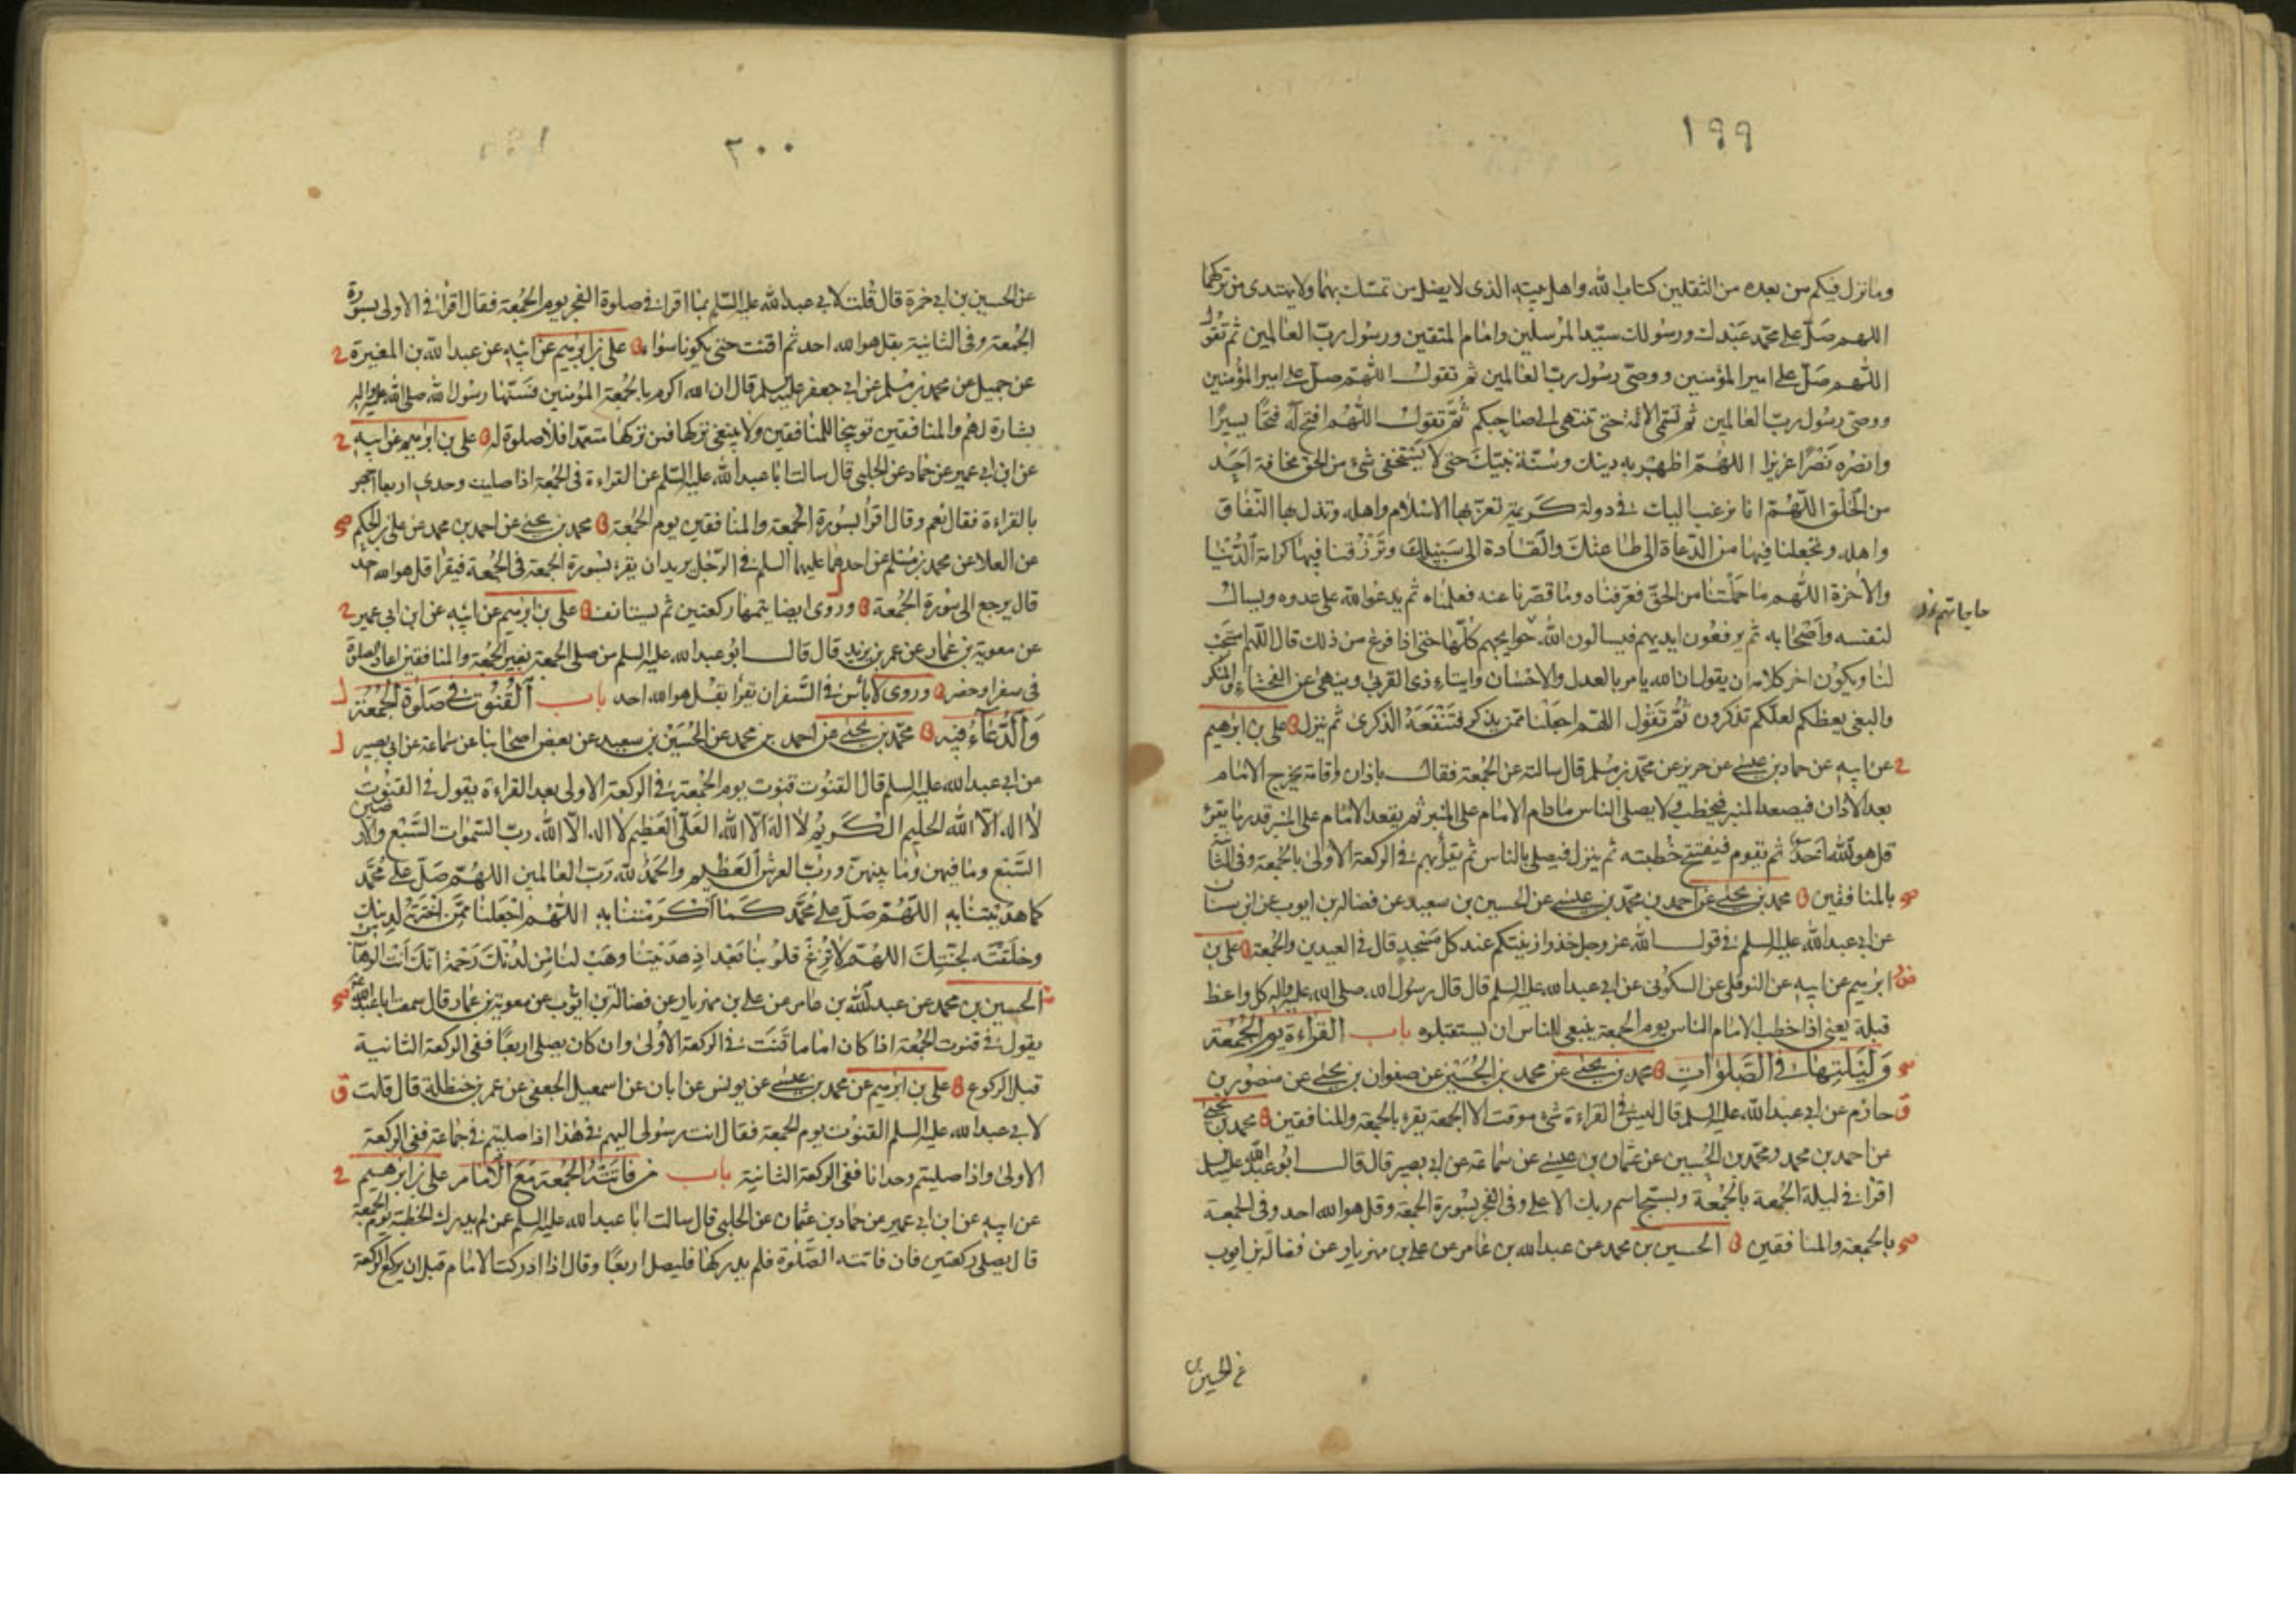 ١٩٩
وما نزل فيكم من بعده من الثقلين كتاب الله واهل بيته الذى لا يضل من تمسك بهما ولا يهتدى من تركهما
اللهم صَلّ على محمّد عَبْدك ورسولك سيّد المرسلين وامام المتقين ورسول ربّ العالمين ثم تقول
اللهم صَلّ على امير المؤمنين ووصىّ رسول ربّ العالمين ثم تقول اللهم صلّ على امير المؤمنين
ووصىّ رسول ربّ العالمين ثم تسمّى الائمة حتى تنتهى الى صاحبكم ثم تقول اللهم افتح له فتحًا يسيرًا
وانصره نَصْرًا عزيزا اللهم اظهر به دينك وسُنّة نبيّك حتى لا يَسْتخفى شئ من الحق مخافة احَد
من الخلق اللهم انا نرغب اليك فى دولة كَريمة تعزّ بها الاسلام واهله وتذل بها النفاق
واهله وتجعلنا فيها من الدّعاة الى طاعتك والقادة الى سَبيلك وتَرْزقنا فيها كرامة الدُّنيا
والاخرة اللهم ما حمّلتنا من الحقّ فعرّفناه وما قصّرنا عنه فعلمناه ثم يدعوا الله على عدوه ويسأل
لنفسه واصحابه ثم يرفعون ايديهم فيسالون الله حوايجهم كلّها حتى اذا فرغ من ذلك قال اللهم استجب
حاجاتهم
لنا ويكون اخر كلامه ان يقول ان الله يامر بالعدل والاحسان وايتاء ذى القربى وينهى عن الفحشاء والمنكر
والبغى يعظكم لعلّكم تذكرون ثُمّ تَقول اللهم اجعلنا ممّن يذكر فتنفعه الذكرى ثم ينزل علىّ بن ابرهيم
عن ابيه عن حماد بن عيسى عن حريز عن محمّد بن مسلم قال سالته عن الجمعة فقال باذان واقامة يخرج الامام
بعد الاذان فيصعد المنبر فيخطب ولا يصلى الناس مادام الامام على المنبر ثم يقعد الامام على المنبر قدر ما يقرء
قل هو الله احد ثم يقوم فيفتتح خُطبته ثم ينزل فيصلى بالناس ثم يقرأ بهم فى الركعة الاولى بالجمعة وفى الثانية
بالمنافقين محمد بن يحيى عن احمد بن محمّد بن عيسى عن الحسين بن سعيد عن فضالة بن ايوب عن ابن سنان
عن ابى عبد الله عليه السلم فى قول الله عز وجل خذوا زينتكم عند كل مَسْجد قال فى العيدين والجمعة على بن
ابرهيم عن ابيه عن النوفلى عن السكونى عن ابى عبد الله عليه السلم قال قال رسول الله صلى الله عليه واله كل واعظ
قبلة يعنى اذا خطب الامام الناس يوم الجمعة ينبغى للناس ان يستقبلوه باب القراءة يوم الجُمُعة
وَلَيلتها فى الصّلوات محمد بن يحيى عن محمد بن الحُسَيْن عن صفوان بن يحيى عن منصور بن
حازم عن ابى عبد الله عليه السلم قال ليس فى القراءة شئ موقت الا الجمعة يقرء بالجمعة والمنافقين محمد بن يحيى
عن احمد بن محمد ومحمّد بن الحُسين عن عثمان بن عيسى عن سماعة عن ابى بصير قال قال ابو عبد الله عليه السلم
اقرأ فى ليلة الجُمعة بالجُمْعة وسبّح اسم ربك الاعلى وفى الفجر بسورة الجمعة وقل هو الله احد وفى الجمعة
بالجمعة والمنافقين الحسين بن محمد عن عبد الله بن عامر عن على بن مهزيار عن فضالة بن ايوب
عن الحسين بن
٢٠٠
عن الحسين بن ابى حمزة قال قلت لابى عبد الله عليه السّلم بما اقرأ فى صلوة الفجر يوم الجُمعة فقال اقرأ فى الاولى بسورة
الجُمعة وفى الثانية بقل هو الله احد ثم اقنت حتى يكونا سواء على بن ابرهيم عن ابيه عن عبد الله بن المغيرة
عن جميل عن محمد بن مسلم عن ابى جعفر عليه السلم قال ان الله اكرم بالجُمعة المؤمنين فسَنّها رسول الله صلى الله عليه واله
بشارة لهم والمنافقين توبيخا للمنافقين ولا ينبغى تركها فمن تركها متعمدا فلا صلوة له على بن ابرهيم عن ابيه
عن ابن ابى عمير عن حماد عن الحلبى قال سالت ابا عبد الله عليه السّلم عن القراءة فى الجُمعة اذا صليت وحدى اربعا اجهر
بالقراءة فقال نعم وقال اقرأ بسُورة الجُمعة والمنافقين يوم الجُمعة محمد بن يحيى عن احمد بن محمد عن على بن الحكم
عن العلا عن محمد بن مُسْلم عن احدهما عليهما السلم فى الرّجل يريد ان يقرء بسُورة الجمعة فى الجُمعة فيقرا قل هو الله احد
قال يرجع الى سُورة الجُمعة وروى ايضا يتمها ركعتين ثم يستانف على بن ابرهيم عن ابيه عن ابن ابى عمير
عن معوية بن عمار عن عمر بن يزيد قال قال ابو عبد الله عليه السلم من صلى الجمعة بغير الجُمعة والمنافقين اعاد الصلوة
فى سفر او حضر وروى لا بأس فى السَّفر ان تقرأ بقل هو الله احد باب القُنُوت فى صَلوة الجُمعَة
وَالدُّعَاءُ فيه محمّد بن يحيى عن احمد بن محمد عن الحُسَيْن بن سعيد عن بعض اصحابنا عن سماعة عن ابى بصير
عن ابى عبد الله عليه السلم قال القنُوت قنوت يوم الجمعة فى الركعة الاولى بعد القراءة يقول فى القنُوت
لا اله الّا الله الحليم الكريم لا اله الّا الله العَلىّ العَظيم لا اله الّا الله ربّ السّموات السَّبْع والارضين
السَّبْع وما فيهن وما بينهنّ وربّ العرش العَظيم والحَمْد لله رَبّ العالمين اللهم صَلّ على محمّد
كما هديتنا به اللّهُمّ صَلّ على محمّد كَما اكْرَمْتنا به اللّهُم اجْعَلنا ممّن اخْتَرْته لدينك
وخلقتَه لجنّتك اللهُم لا تُزغ قلوبنا بَعْد اذ هديتنا وهَبْ لنا من لدُنك رَحْمة انّك انت الوهّاب
الحسين بن محمد عن عبد الله بن عامر عن على بن مهزيار عن فضالة بن ايّوب عن معوية بن عمار قال سمعت ابا عبد الله
يقول فى قنوت الجُمعة اذا كان اماما قَنَت فى الركعة الاولى وان كان يصلى اربعًا ففى الركعة الثانية
قبل الركوع على بن ابرهيم عن محمد بن عيسى عن يونس عن ابان عن اسمعيل الجعفى عن عمر بن حنظلة قال قلت
لابى عبد الله عليه السلم القنوت يوم الجمعة فقال انت رسولى اليهم فى هذا اذا صليتم فى جماعة ففى الركعة
الاولى واذا صليتم وحدانا ففى الركعة الثانية باب من فاتَتْهُ الجُمعة مَعَ الامام على بن ابرهيم
عن ابيه عن ابن ابى عمير عن حماد بن عثمان عن الحلبى قال سالت ابا عبد الله عليه السلم عمن لم يدرك الخطبة يوم الجمعة
قال يصلى ركعتين فان فاتته الصّلوة فلم يدركها فليصل اربعًا وقال اذا ادركت الامام قبل ان يركع الركعة